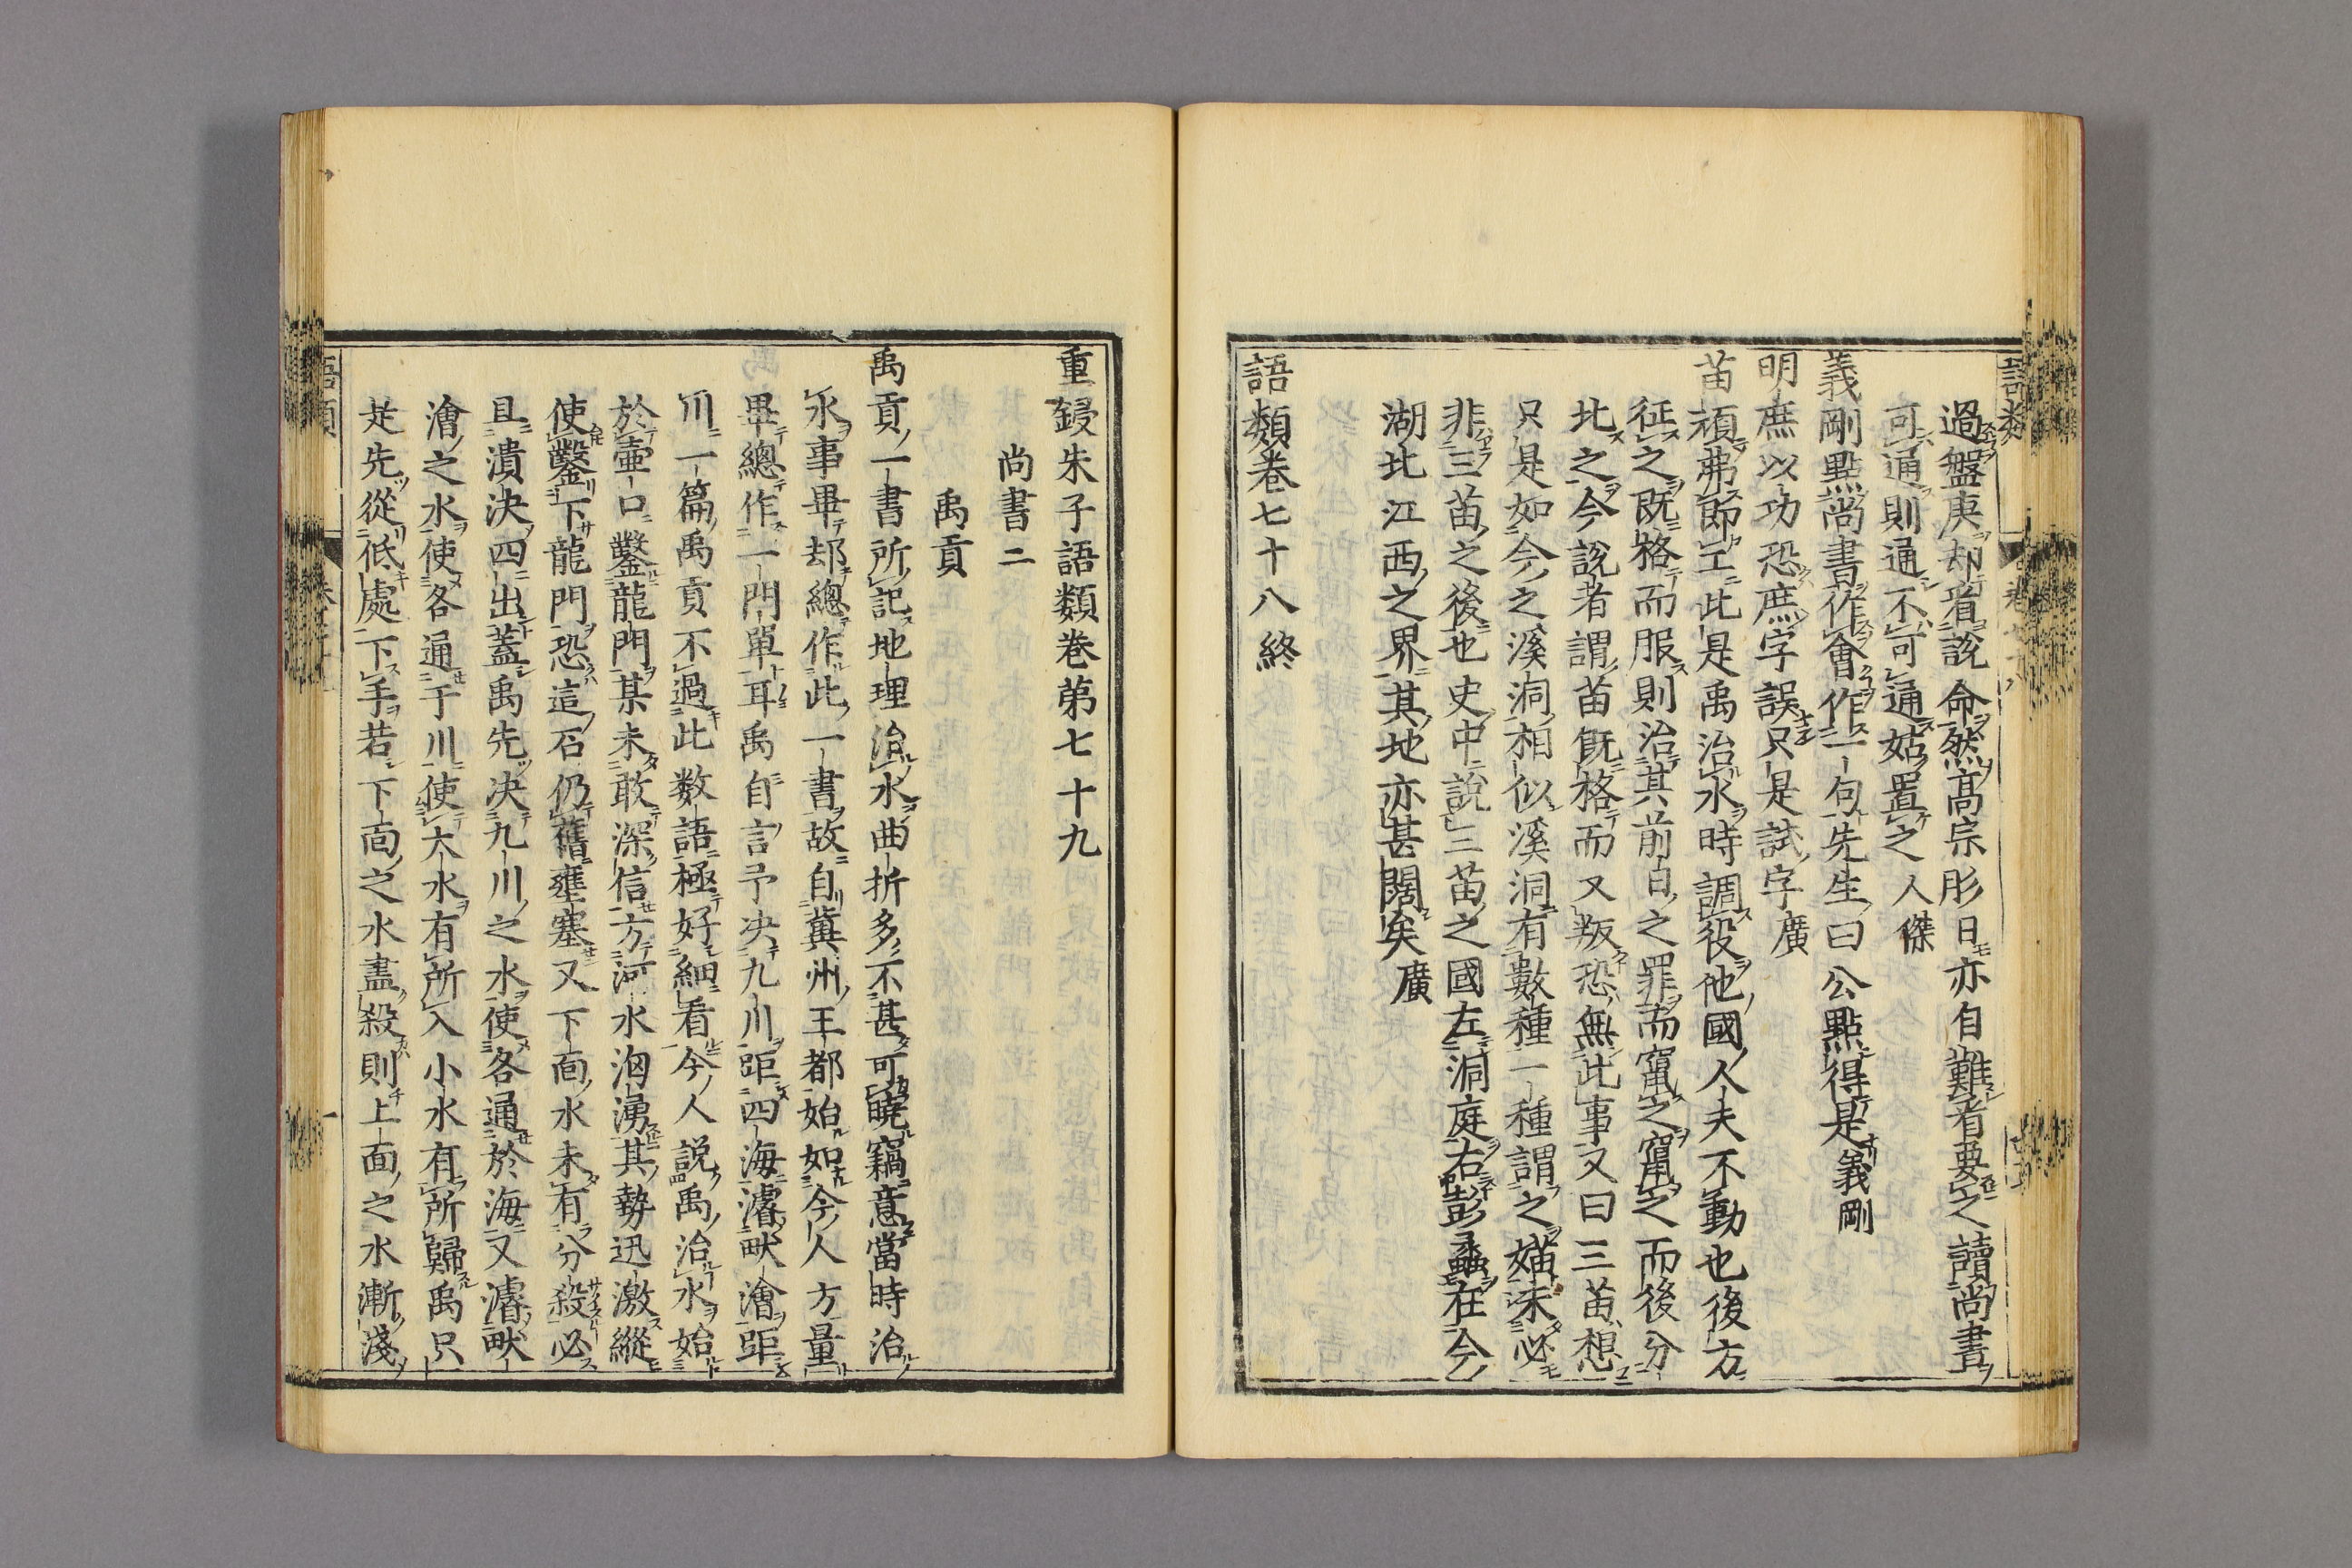 過盤庚却看說命然高宗肜日亦自難看要之讀尚書
可通則通不可通姑置之人傑
義剛點尚書作會作一句先生曰公點得是義剛
明庶以功恐庶字誤只是試字廣
苗頑弗卽工此是禹治水時調役他國人夫不動也後方
征之既格而服則治其前日之罪而竄之竄之而後分
北之今說者謂苗既格而又叛恐無此事又曰三苗想
只是如今之溪洞相似溪洞有數種一種謂之媌未必
非三苗之後也史中說三苗之國左洞庭右彭蠡在今
湖北江西之界其地亦甚闊矣廣
語類卷七十八終
重鋟朱子語類卷第七十九
尚書二
禹貢
禹貢一書所記地理治水曲折多不甚可曉竊意當時治
水事畢却總作此一書故自冀州王都始如今人方量
畢總作一門單耳禹自言予决九川距四海濬畎澮距
川一篇禹貢不過此数語極好細看今人説禹治水始
於壷口鑿龍門某未敢深信方河水洶湧其勢迅激縱
使鑿下龍門恐這石仍舊壅塞又下面水未有分殺必
且潰决四出蓋禹先决九川之水使各通於海又濬畎
澮之水使各通于川使大水有所入小水有所歸禹只
是先從低處下手若下面之水盡殺則上面之水漸淺